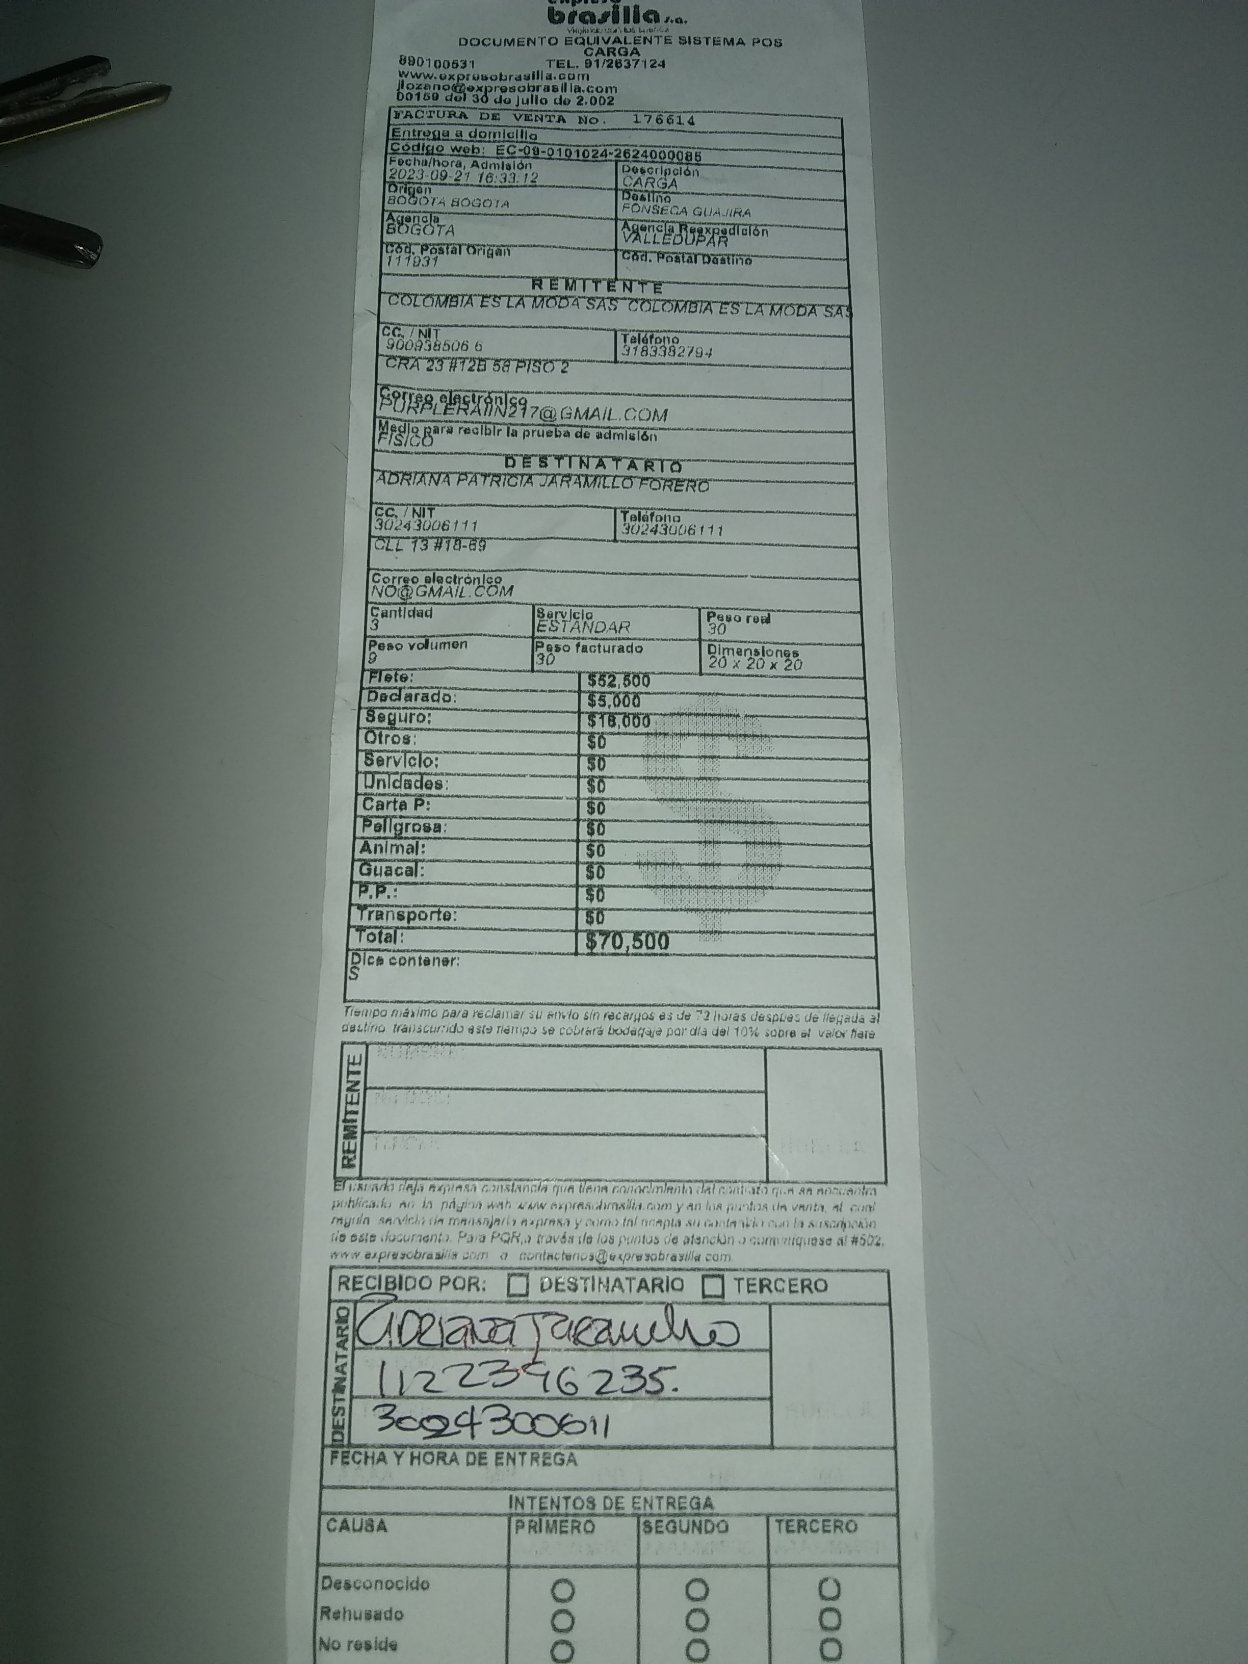 expreso
brasilia s.a.
DOCUMENTO EQUIVALENTE SISTEMA POS
CARGA
890100531 TEL. 91/2637124
www.expresobrasilia.com
jlozano@expresobrasilia.com
00159 del 30 de julio de 2.002
FACTURA DE VENTA No. 176614
Entrega a domicilio
Código web: EC-09-0101024-2624000085
Fecha/hora, Admisión Descripción
2023-09-21 16:33:12 CARGA
Origen Destino
BOGOTA BOGOTA FONSECA GUAJIRA
Agencia Agencia Reexpedición
BOGOTA VALLEDUPAR
Cód. Postal Origen Cód. Postal Destino
111931
REMITENTE
COLOMBIA ES LA MODA SAS COLOMBIA ES LA MODA SAS
CC. / NIT Teléfono
900938506 6 3183382794
CRA 23 #12B 58 PISO 2
Correo electrónico
PURPLERAIIN217@GMAIL.COM
Medio para recibir la prueba de admisión
FISICO
DESTINATARIO
ADRIANA PATRICIA JARAMILLO FORERO
CC. / NIT Teléfono
30243006111 30243006111
CLL 13 #18-69
Correo electrónico
NO@GMAIL.COM
Cantidad Servicio Peso real
3 ESTANDAR 30
Peso volumen Peso facturado Dimensiones
9 30 20 x 20 x 20
Flete: $52,500
Declarado: $5,000
Seguro: $18,000
Otros: $0
Servicio: $0
Unidades: $0
Carta P: $0
Peligrosa: $0
Animal: $0
Guacal: $0
P.P.: $0
Transporte: $0
Total: $70,500
Dice contener:
S
Tiempo máximo para reclamar su envio sin recargos es de 72 horas despues de llegada al
destino, transcurrido este tiempo se cobrará bodegaje por día del 10% sobre el valor flete
REMITENTE
El usuario deja expresa constancia que tiene conocimiento del contrato que se encuentra
publicado en la página web www.expresobrasilia.com y en los puntos de venta, el cual
regula servicio de mensajería expresa y como tal acepta su contenido con la suscripción
de este documento. Para PQR,a través de los puntos de atención o comuníquese al #502,
www.expresobrasilia.com o contactenos@expresobrasilia.com
RECIBIDO POR: DESTINATARIO TERCERO
DESTINATARIO
Adriana Jaramillo
1122396235.
3024300611
FECHA Y HORA DE ENTREGA
INTENTOS DE ENTREGA
CAUSA PRIMERO SEGUNDO TERCERO
Desconocido
Rehusado
No reside